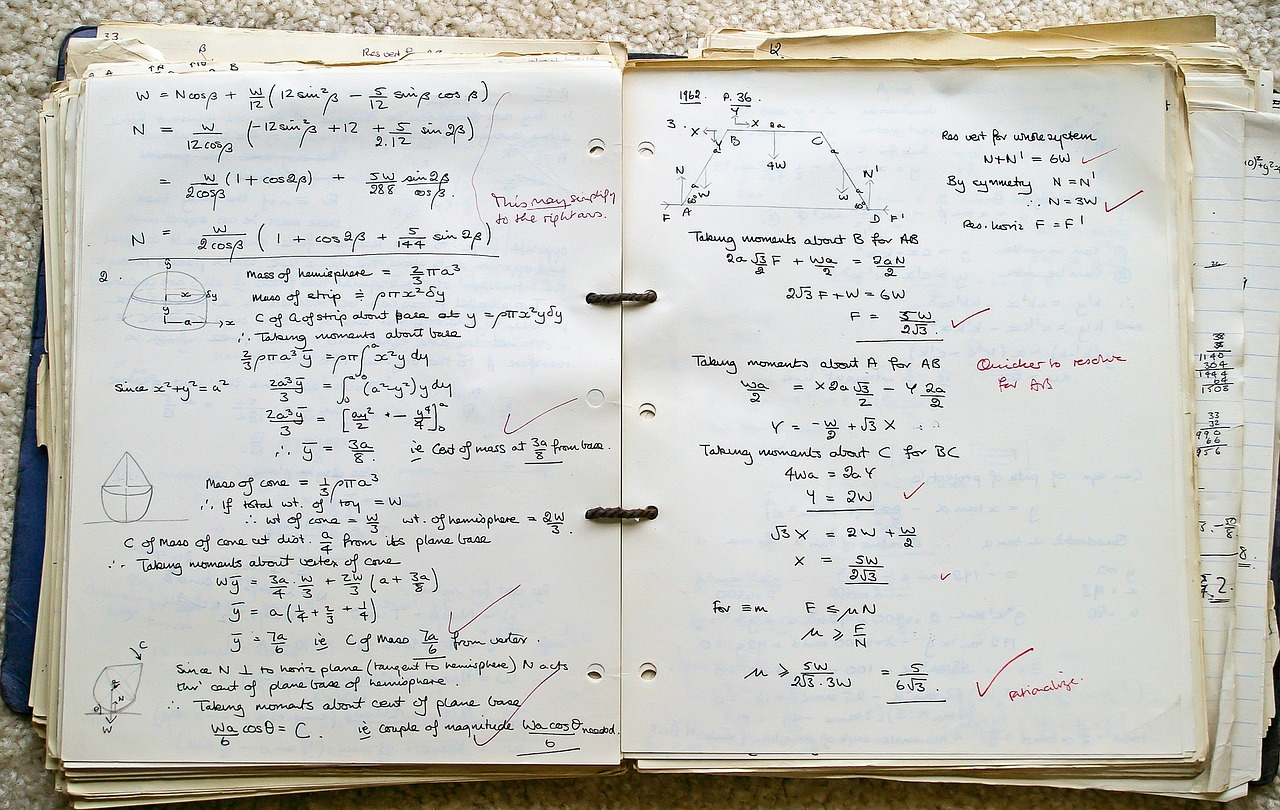 33.
β
Res vert
A B
W = Ncosβ + W/12 (12sin²β − 5/12 sinβ cosβ)
N = W/12cosβ (-12sin²β + 12 + 5/2.12 sin2β)
= W/2cosβ (1 + cos2β) + 5W/288 sin2β/cosβ.
This may simplify
to the right ans.
N = W/2cosβ (1 + cos2β + 5/144 sin2β)
2.
y
x δy
y
a x
Mass of hemisphere = 2/3 πa³
Mass of strip ≑ ρπx²δy
C of G of strip about base at y = ρπx²yδy
∴ Taking moments about base
2/3 ρπa³ȳ = ρπ∫₀ᵃ x²y dy
Since x²+y²=a² 2a³ȳ/3 = ∫₀ᵃ (a²-y²)y dy
2a³ȳ/3 = [ay²/2 - y⁴/4]₀ᵃ
∴ ȳ = 3a/8 ie Cent of mass at 3a/8 from base.
Mass of cone = 1/3 ρπa³
∴ If total wt. of toy = W
∴ wt of cone = W/3 wt. of hemisphere = 2W/3.
C of Mass of cone at dist. a/4 from its plane base
∴ Taking moments about vertex of cone
Wȳ = 3a/4 . W/3 + 2W/3 (a + 3a/8)
ȳ = a(1/4 + 2/3 + 1/4)
ȳ = 7a/6 ie C of Mass 7a/6 from vertex.
C
N
θ
W
Since N ⊥ to horiz plane (tangent to hemisphere) N acts
thro' cent of plane base of hemisphere.
∴ Taking moments about cent of plane base
Wa/6 cosθ = C. ie couple of magnitude Wa cosθ/6 needed.
12.
1962. P. 36.
3.
Y
X X 2a
B C
Y a a
4W
N a a N'
W W
60° 60°
F A D F'
Res vert for whole system
N+N' = 6W
By symmetry N = N'
∴ N = 3W
Res. horiz F = F'
Taking moments about B for AB
2a √3/2 F + Wa/2 = 2aN/2
2√3 F + W = 6W
F = 5W/2√3.
Taking moments about A for AB
Quicker to resolve
for AB
Wa/2 = X 2a √3/2 − Y 2a/2
Y = -W/2 + √3 X
Taking moments about C for BC
4Wa = 2aY
Y = 2W
√3 X = 2W + W/2
X = 5W/2√3
For ≡m F ≤ μN
μ ≥ F/N
μ ≥ 5W/2√3.3W = 5/6√3.
rationalize.
38
38
1140
304
1444
64
1508
33
32
990
66
956